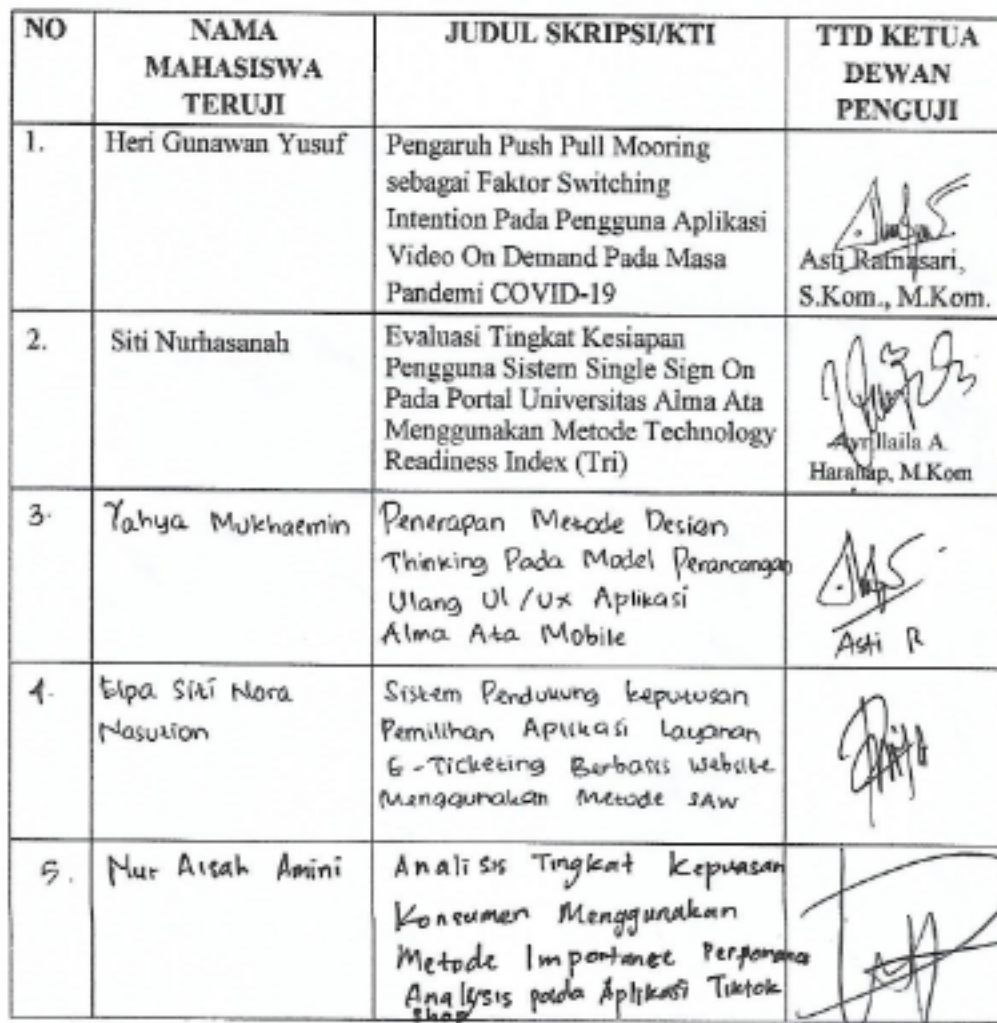 NO
NAMA MAHASISWA TERUJI
JUDUL SKRIPSI/KTI
TTD KETUA DEWAN PENGUJI
1.
Heri Gunawan Yusuf
Pengaruh Push Pull Mooring
sebagai Faktor Switching
Intention Pada Pengguna Aplikasi
Video On Demand Pada Masa
Pandemi COVID-19
Asti Ratnasari,
S.Kom., M.Kom.
2.
Siti Nurhasanah
Evaluasi Tingkat Kesiapan
Pengguna Sistem Single Sign On
Pada Portal Universitas Alma Ata
Menggunakan Metode Technology
Readiness Index (Tri)
Ayrllaila A.
Harahap, M.Kom
3.
Yahya Mukhaemin
Penerapan Metode Design
Thinking Pada Model Perancangan
Ulang UI/UX Aplikasi
Alma Ata Mobile
Asti R
4.
Elpa Siti Nora
Nasution
Sistem Pendukung keputusan
Pemilihan Aplikasi Layanan
E-Ticketing Berbasis Website
Menggunakan Metode SAW
5.
Nur Aisah Amini
Analisis Tingkat Kepuasan
Konsumen Menggunakan
Metode Importance Performance
Analysis pada Aplikasi Tiktok
Shop